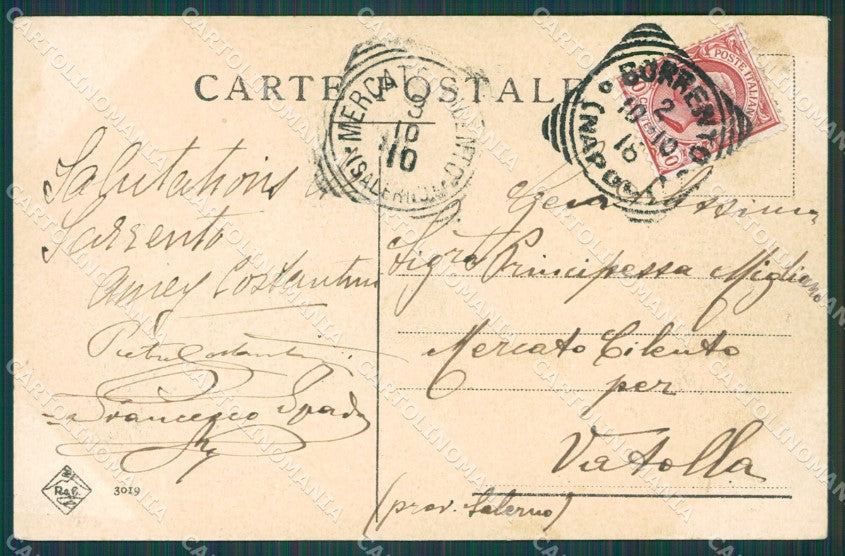 CARTE POSTALE
MERCATO CILENTO
3
10
10
(SALERNO)
SORRENTO
2
10-10
16
(NAPOLI)
POSTE ITALIANE
10
Salutations de
Sarrento
Costantino
Pietro Costantino
Francesco Spada
Sigra Principessa Migliano
Mercato Cilento
per
Vatolla
(prov. Salerno)
3019
CARTOLINOMANIA